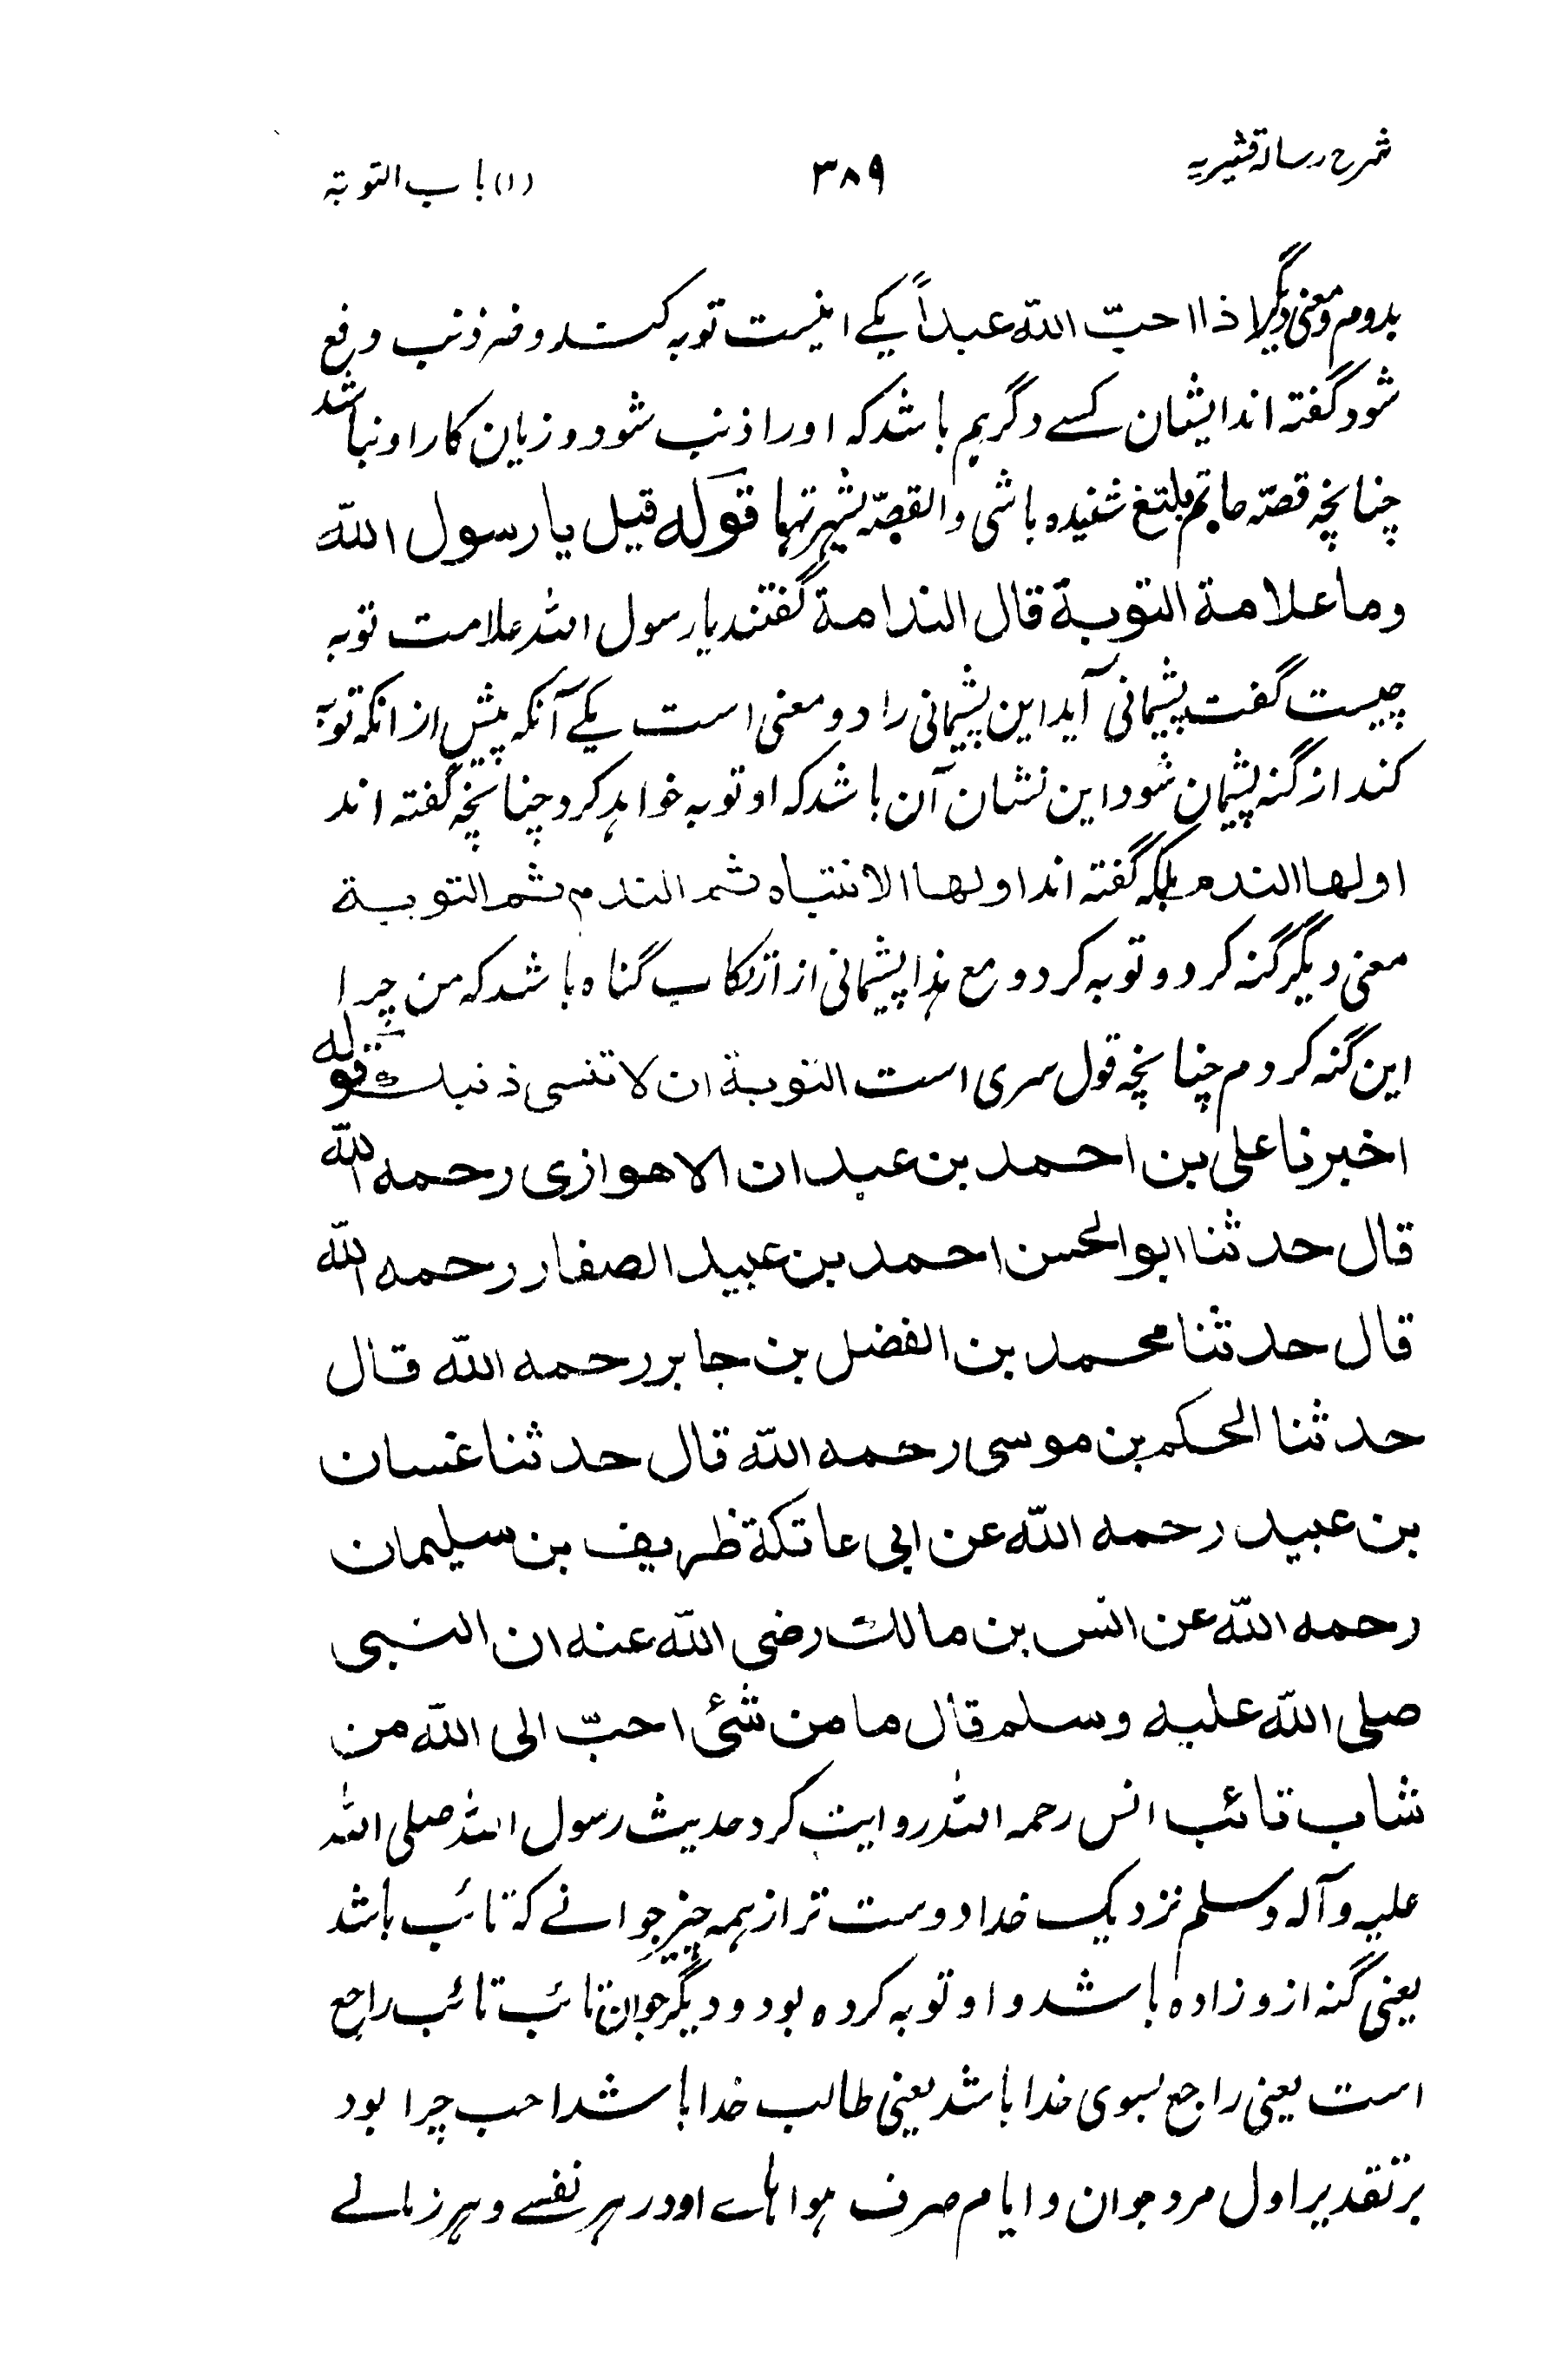 شرح رسالہ قشیریہ ۳۸۹ (۱) باب التوبتہ
بدوم ومعنی دیگر اذا احبّ اللّٰہ عبداً یکے اینست توبہ کند وضر ذنب ورفع
شود گفتہ اند ایشان کسے دگریم باشد کہ اورا ذنب شود و زیان کار او نباشد
چنانچہ قصّہ حاتم بلتغ شنیدہ باشی والقصّہ لشہرتہا قولہ قیل یا رسول اللّٰہ
وما علامۃ التوبۃ قال الندامۃ گفتند یا رسول اللہ علامت توبہ
چیست گفت پشیمانی آید این پشیمانی را دو معنی است یکے آنکہ پیش از انکہ توبہ
کند از گنہ پشیمان شود این نشان آن باشد کہ او توبہ خواہد کرد چنانچہ گفتہ اند
اولہا الندم بلکہ گفتہ اند اولہا الانتباہ ثم الندم ثم التوبۃ
معنی دیگر گنہ کرد و توبہ کرد و مع ہذا پشیمانی از ارتکاب گناہ باشد کہ من چرا
این گنہ کردم چنانچہ قول سری است التوبۃ ان لا تنسی ذنبک قولہ
اخبرنا علی بن احمد بن عبدان الاھوازی رحمہ اللّٰہ
قال حدثنا ابو الحسن احمد بن عبید الصفار رحمہ اللّٰہ
قال حدثنا محمد بن الفضل بن جابر رحمہ اللّٰہ قال
حدثنا الحکم بن موسی رحمہ اللّٰہ قال حدثنا غسان
بن عبید رحمہ اللّٰہ عن ابی عاتکۃ ظریف بن سلیمان
رحمہ اللّٰہ عن انس بن مالک رضی اللّٰہ عنہ ان النبی
صلی اللّٰہ علیہ وسلم قال ما من شئ احبّ الی اللّٰہ من
شاب تائب انس رحمہ اللہ روایت کرد حدیث رسول اللہ صلی اللہ
علیہ وآلہ وسلم نزدیک خدا دوست تر از ہمہ چیز جوانے کہ تائب باشد
یعنی گنہ ازو زادہ باشد و او توبہ کردہ بود و دیگر جوان تائب تائب راجع
است یعنی راجع بسوی خدا باشد یعنی طالب خدا باشد احب چرا بود
بر تقدیر اول مرد جوان و ایام صرف ہواہاے او در ہر نفسے و ہر زمانے